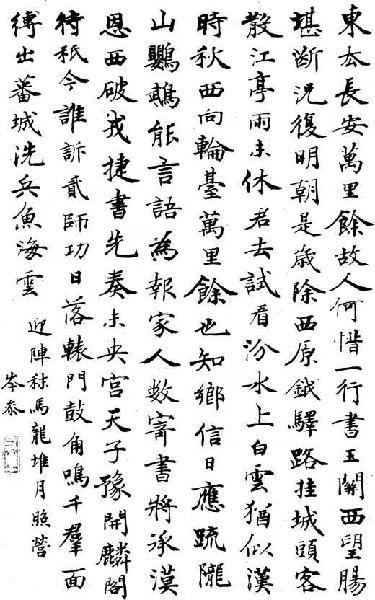 東去長安萬里餘故人何惜一行書玉關西望腸
堪断況復明朝是歳除西原鉞驛路挂城頭客
散江亭雨未休君去試看汾水上白雲猶似漢
時秋西向輪臺萬里餘也知鄉信日應疏隴
山鸚鵡能言語為報家人數寄書將承漢
恩西破戎捷書先奏未央宮天子豫開麟閣
待秖今誰訴貳師功日落轅門鼓角鳴千羣面
縛出蕃城洗兵魚海雲
迎陣秣馬龍堆月照營
岑参